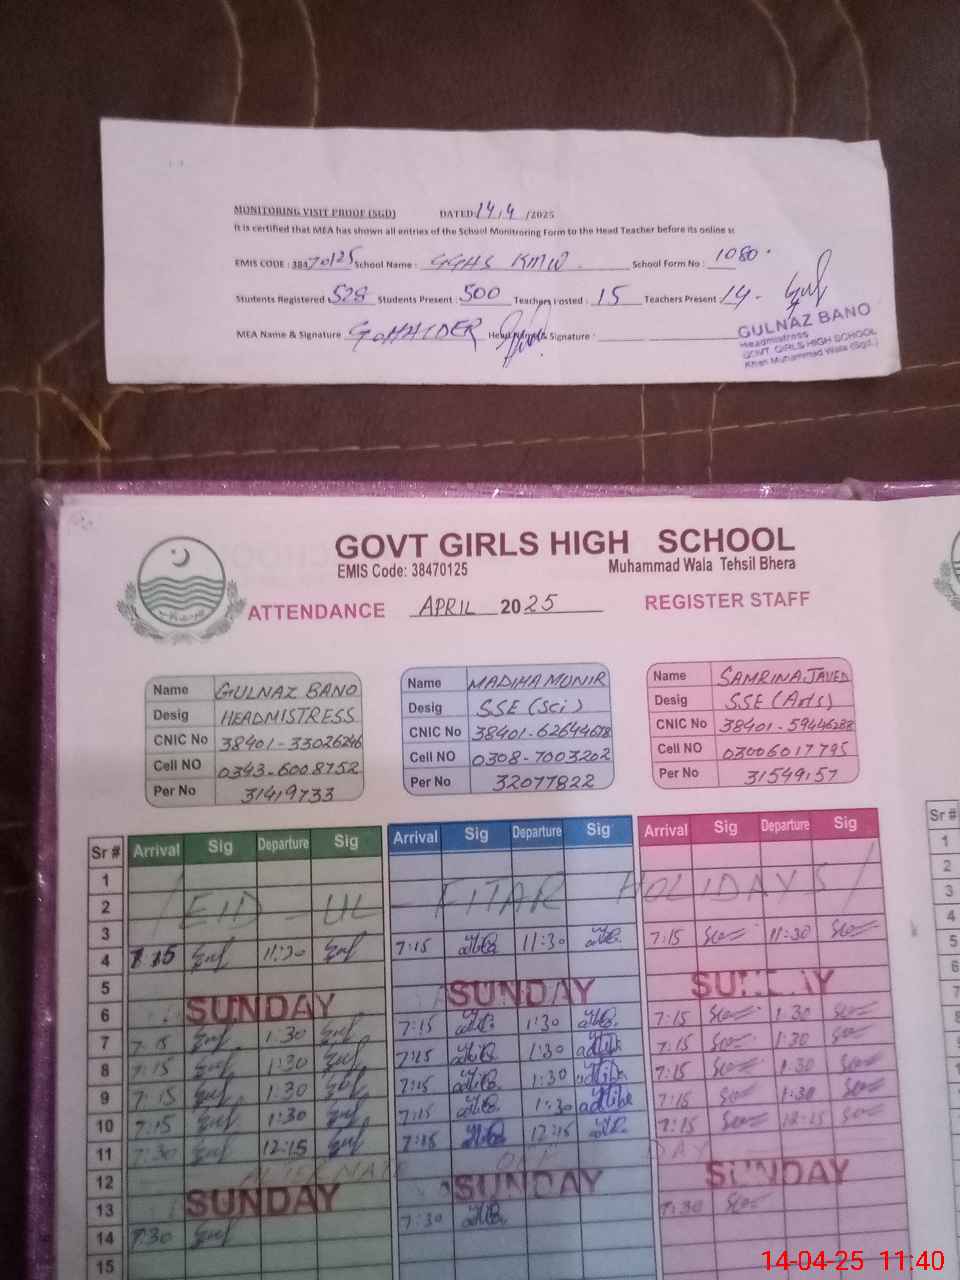 MONITORING VISIT PROOF (SGD) DATED: 14/4 /2025
It is certified that MEA has shown all entries of the School Monitroring Form to the Head Teacher before its online
EMIS CODE : 38470125 School Name : GGHS KMW School Form No : 1080
Students Registered 528 Students Present : 500 Teachers Posted : 15 Teachers Present : 14
MEA Name & Signature G. HAIDER Signature :
GULNAZ BANO
Headmistress
GOVT GIRLS HIGH SCHOOL
Khan Muhammad Wala (Sgd.)
GOVT GIRLS HIGH SCHOOL
EMIS Code: 38470125 Muhammad Wala Tehsil Bhera
ATTENDANCE APRIL 2025 REGISTER STAFF
Name GULNAZ BANO Name MADIHA MUNIR Name SAMRINA JAVED
Desig HEADMISTRESS Desig SSE (Sci) Desig SSE (Arts)
CNIC No 38401-33026246 CNIC No 38401-62644678 CNIC No 38401-59446288
Cell NO 0343-6008752 Cell NO 0308-7003202 Cell NO 03006017795
Per No 31419733 Per No 32077822 Per No 31549157
Sr # Arrival Sig Departure Sig Arrival Sig Departure Sig Arrival Sig Departure Sig Sr #
1 1
2 EID - UL - FITAR HOLIDAYS 2
3 3
4 7:15 11:30 7:15 11:30 7:15 11:30 4
5 5
6 SUNDAY SUNDAY SUNDAY 6
7 7:15 1:30 7:15 1:30 7:15 1:30 7
8 7:15 1:30 7:15 1:30 7:15 1:30 8
9 7:15 1:30 7:15 1:30 7:15 1:30 9
10 7:15 1:30 7:15 1:30 7:15 1:30 10
11 7:30 12:15 7:15 12:15 7:15 12:15 11
12 OFF DAY 12
13 SUNDAY SUNDAY SUNDAY 13
14 7:30 7:30 7:30 14
15
14-04-25 11:40